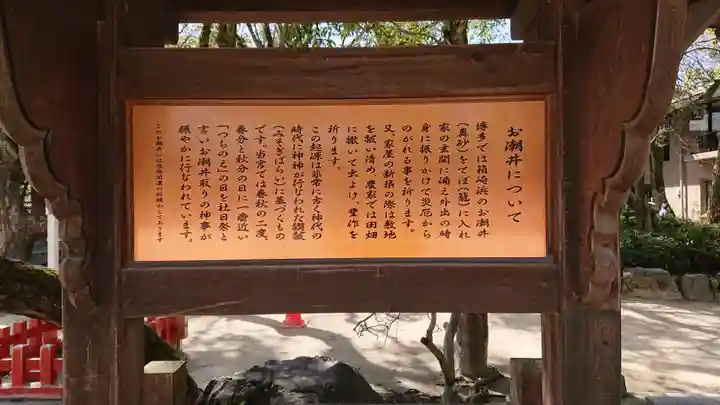 お潮井について
博多では箱崎浜のお潮井
(真砂)をてぼ(籠)に入れ
家の玄関に備え外出の時
身に振りかけて災厄から
のがれる事を祈ります。
又、家屋の新構の際は敷地
を祓い清め、農家では田畑
に撒いて虫よけ、豊作を
祈ります。
この起源は非常に古く神代の
時代に神神が行なわれた禊祓
(みそぎはらい)に基づくもの
です。当宮では春秋の二度、
春分と秋分の日に一番近い
「つちのえ」の日を社日祭と
言いお潮井取りの神事が
賑やかに行なわれています。